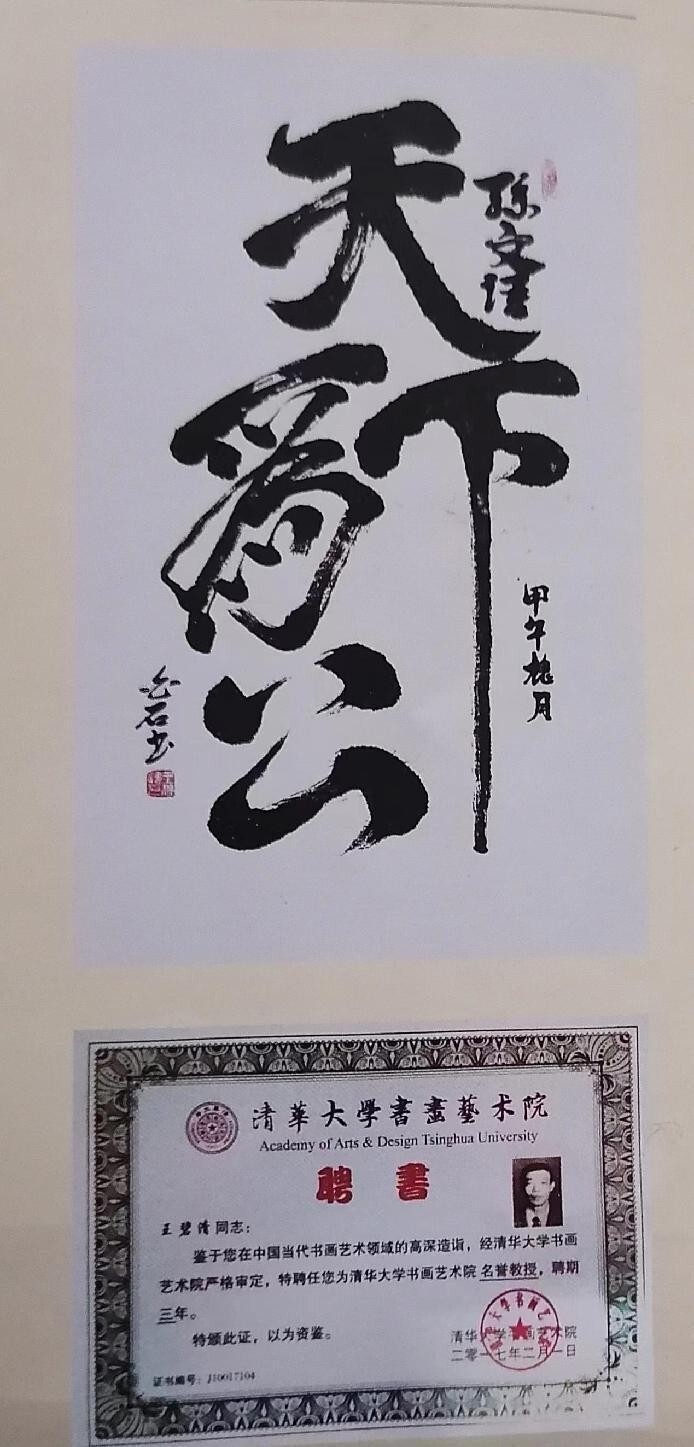 天下
为公
孙文
甲午桂月
石书
清華大學書畫藝术院
Academy of Arts & Design Tsinghua University
聘書
王碧清同志：
鉴于您在中国当代书画艺术领域的高深造诣，经清华大学书画
艺术院严格审定，特聘任您为清华大学书画艺术院名誉教授，聘期
三年。
特颁此证，以为资鉴。
清华大学书画艺术院
二零一七年二月一日
证书编号：J10017104